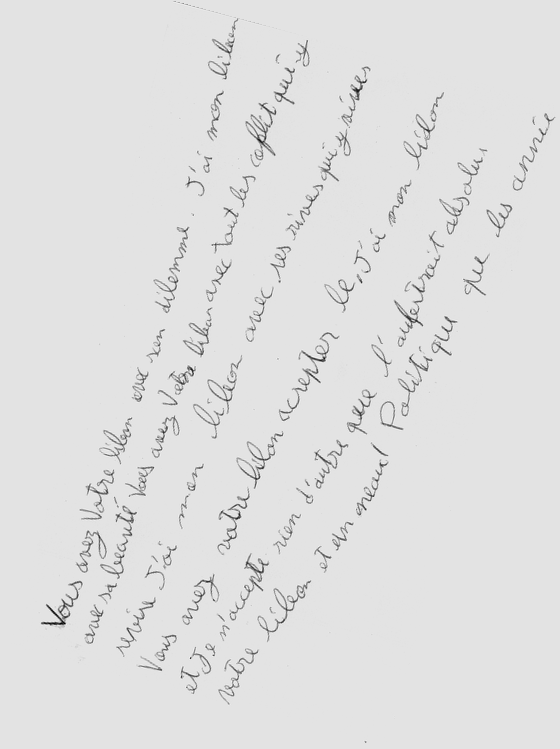 Vous avez Votre liban avec son dilemme. J'ai mon liban
avec sa beauté Vous avez Votre liban avec tout les coflit qui y
J'ai mon liban avec ses rives qui y
Vous avez votre liban accepter le, J'ai mon lidon
et Je n'accepte rien d'autre que l' absolu,
votre libon et un Politique que les année